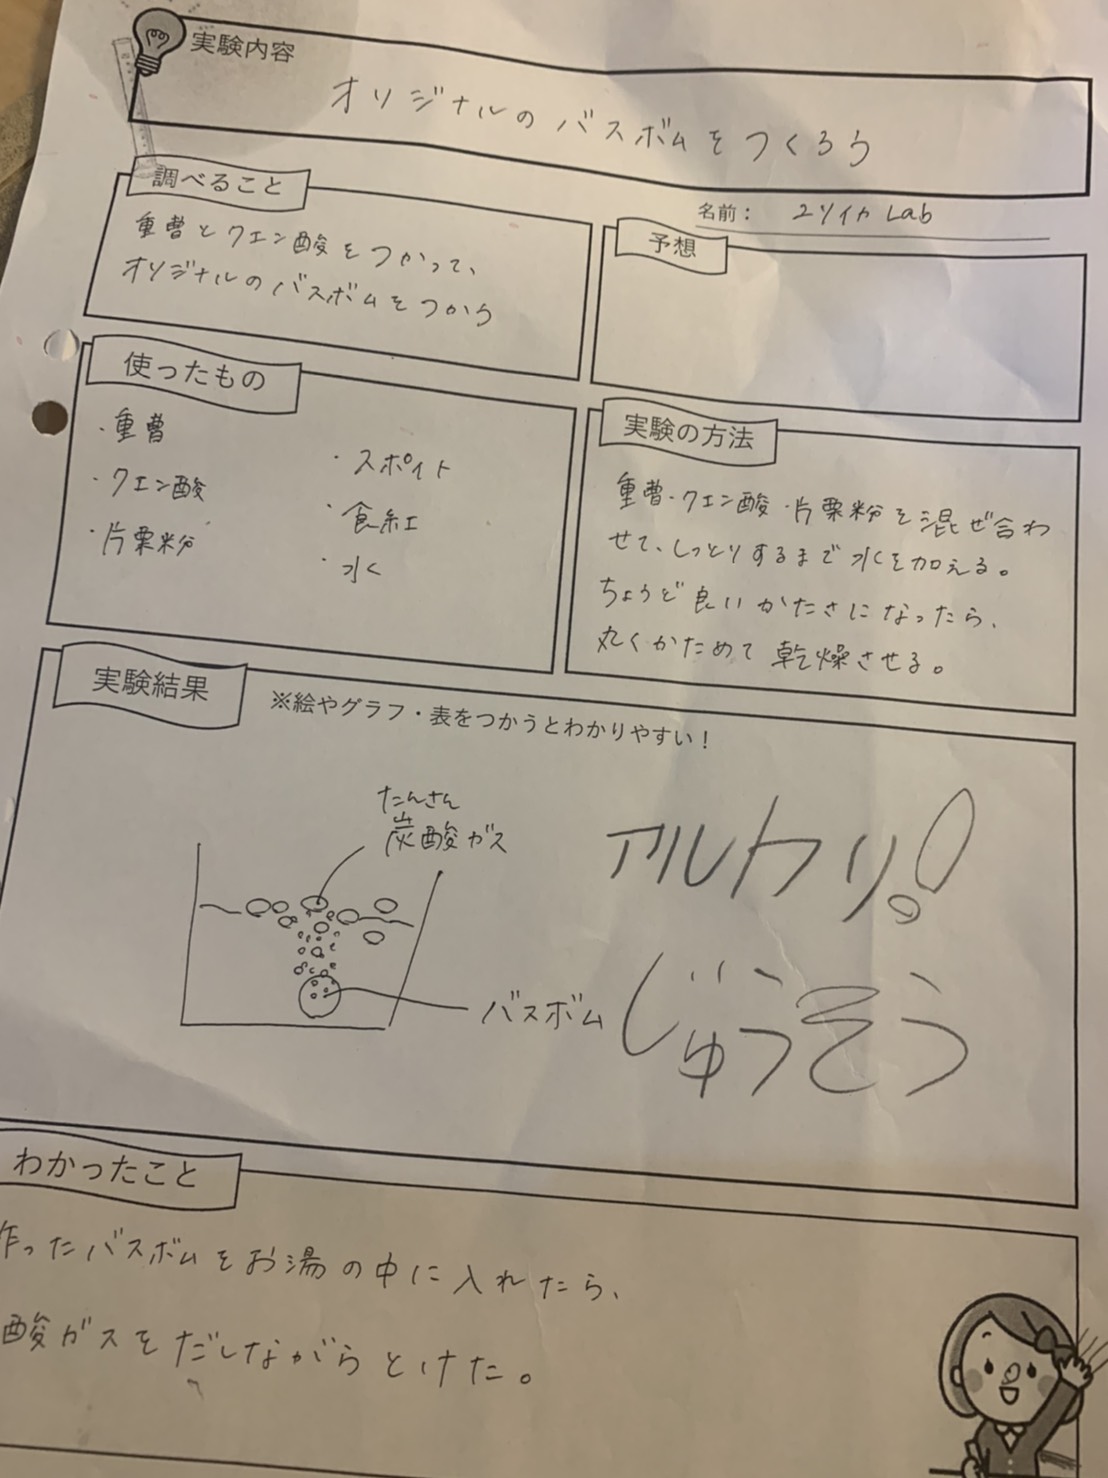 実験内容
オリジナルのバスボムをつくろう
調べること
重曹とクエン酸をつかって、
オリジナルのバスボムをつかう
名前： ユリイカ Lab
予想
使ったもの
・重曹
・クエン酸
・片栗粉
・スポイト
・食紅
・水
実験の方法
重曹・クエン酸・片栗粉を混ぜ合わ
せて、しっとりするまで水を加える。
ちょうど良いかたさになったら、
丸くかためて乾燥させる。
実験結果
※絵やグラフ・表をつかうとわかりやすい！
たんさん
炭酸ガス
バスボム
アルカリ！
じゅうそう
わかったこと
作ったバスボムをお湯の中に入れたら、
酸ガスをだしながらとけた。